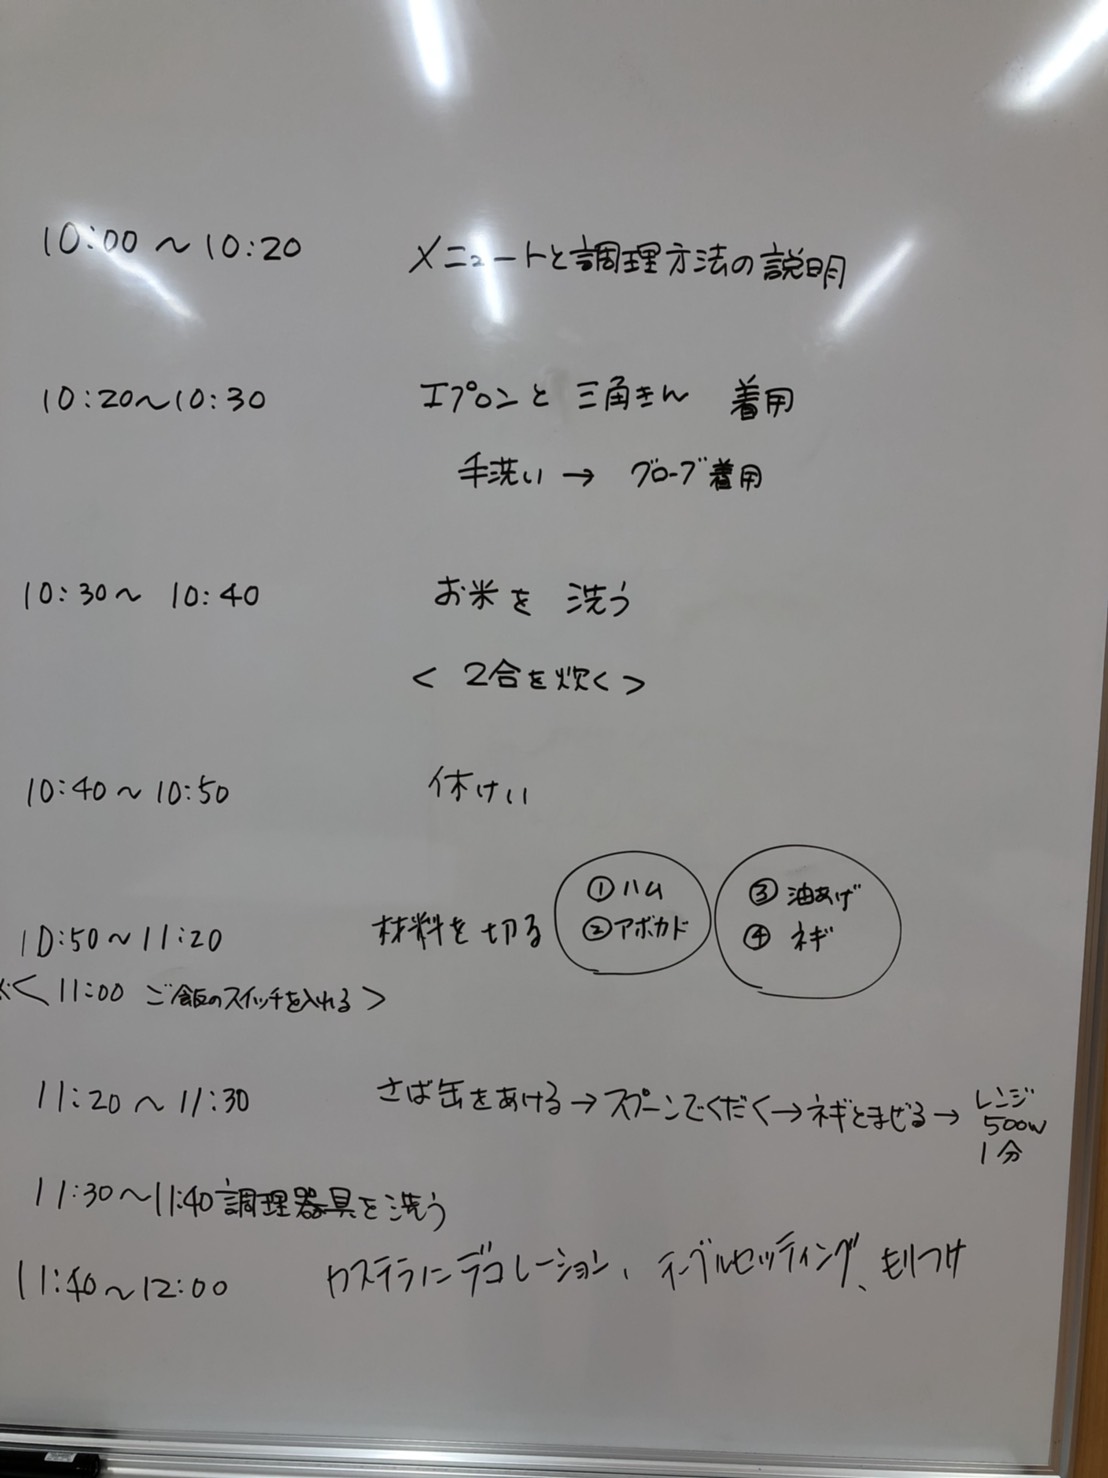 10:00～10:20 メニュートと調理方法の説明
10:20～10:30 エプロンと 三角きん 着用
手洗い → グローブ着用
10:30～ 10:40 お米を 洗う
< 2合を炊く >
10:40～10:50 休けい
①ハム
②アボカド
③ 油あげ
④ ネギ
10:50～11:20 材料を切る
※< 11:00 ご飯のスイッチを入れる >
11:20～11:30 さば缶をあける→スプーンでくだく→ネギとまぜる→ レンジ
500w
1分
11:30～11:40 調理器具を洗う
11:40～12:00 カステラにデコレーション、テーブルセッティング、もりつけ